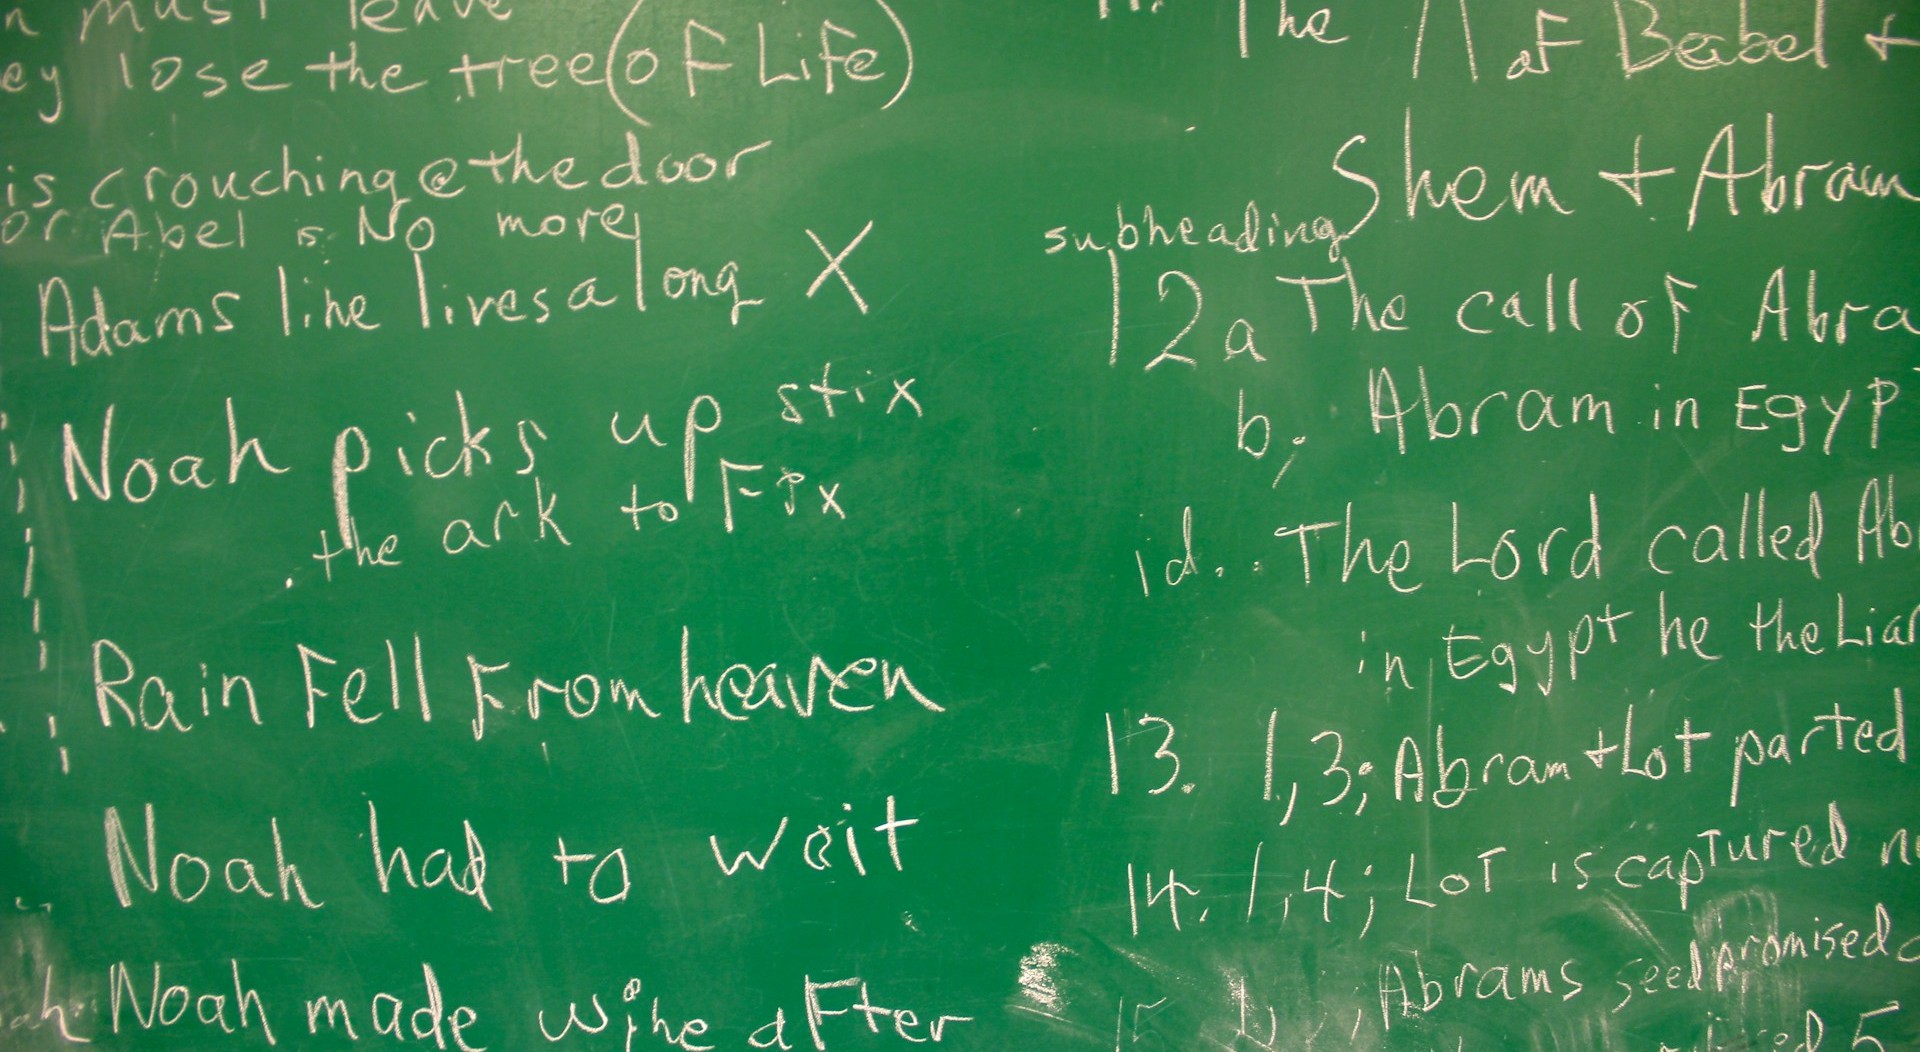 must leave
ey lose the tree (of Life)
is crouching @ the door
or Abel is No more
Adams line lives along X
Noah picks up stix
the ark to Fix
Rain Fell From heaven
Noah had to wait
Noah made wine after
11. The Λ of Babel +
Shem + Abram
subheading
12a The call of Abra
b. Abram in Egyp
1d. The Lord called Ab
in Egypt he the Liar
13. 1,3; Abram + Lot parted
14. 1,4; LoT is capTured
15 Abrams seed promised
5